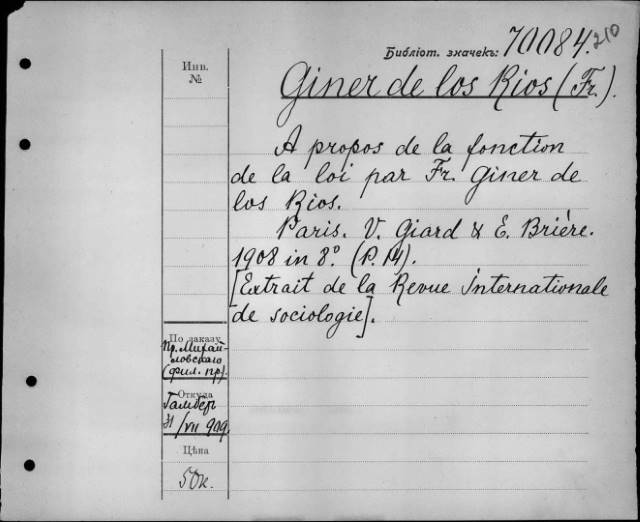 Библіот. значекъ: 70084. 210
Инв.
№
Giner de los Rios (Fr.).
A propos de la fonction
de la loi par Fr. Giner de
los Rios.
Paris. V. Giard & E. Briére.
1908 in 8º. (P. 14).
[Extrait de la Revue Internationale
de sociologie].
По заказу
пр. Михай-
ловскаго
(фил. пр).
Откуда
Гамберъ
31/VII 909.
Цѣна
50к.